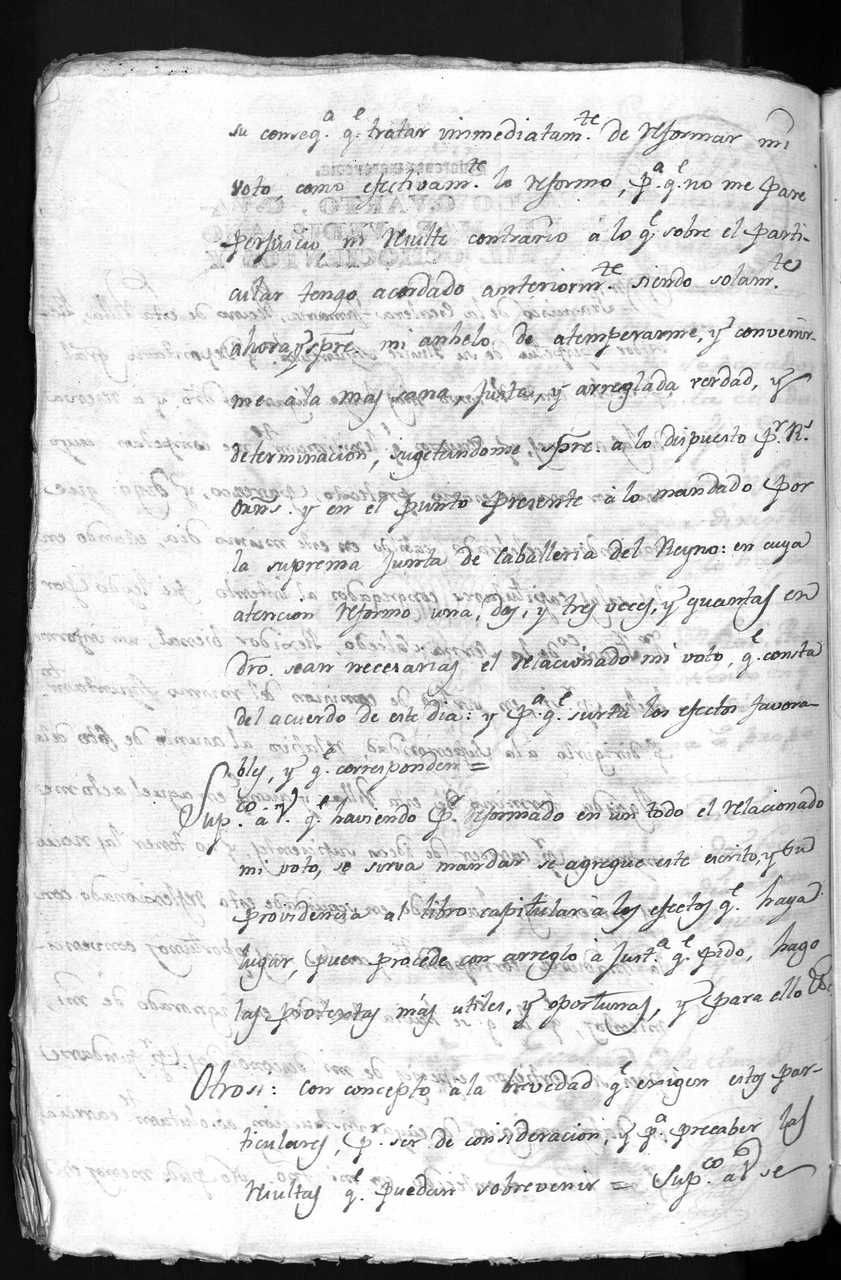 su conseq.ª q.e tratar immediatam.te de reformar mi
voto como efectivam.te lo reformo, p.ª q.e no me pare
perjuicio ni resulte contrario à lo q.e sobre el parti-
cular tengo acordado anteriorm.te siendo solam.te
ahora, y spre. mi anhelo, de atemperarme, y convenir-
me ala mas sana, justa, y arreglada verdad, y
determinacion, sugetandome spre. a lo dispuesto p.r R.s
orns. y en el punto presente à lo mandado por
la suprema Junta de Caballeria del Reyno: en cuya
atencion reformo una, dos, y tres veces, y quantas en
dro. sean necesarias el relacionado mi voto, q.e consta
del acuerdo de este dia: y p.ª q.e surta los efectos favora-
bles, y q.e corresponden =
Sup.co a V. q.e haviendo p.r reformado en un todo el relacionado
mi voto, se sirva mandar se agregue este escrito, y su
providencia al libro capitular à los efectos q.e haya
lugar, pues procede con arreglo à Just.ª q.e pido, hago
las protextas mas utiles, y oportunas, y para ello &c.
Otrosi: con concepto à la brevedad q.e exigen estos par-
ticulares, p.r ser de consideracion, y p.ª precaber las
resultas q.e puedan sobrevenir = Sup.co a V. se